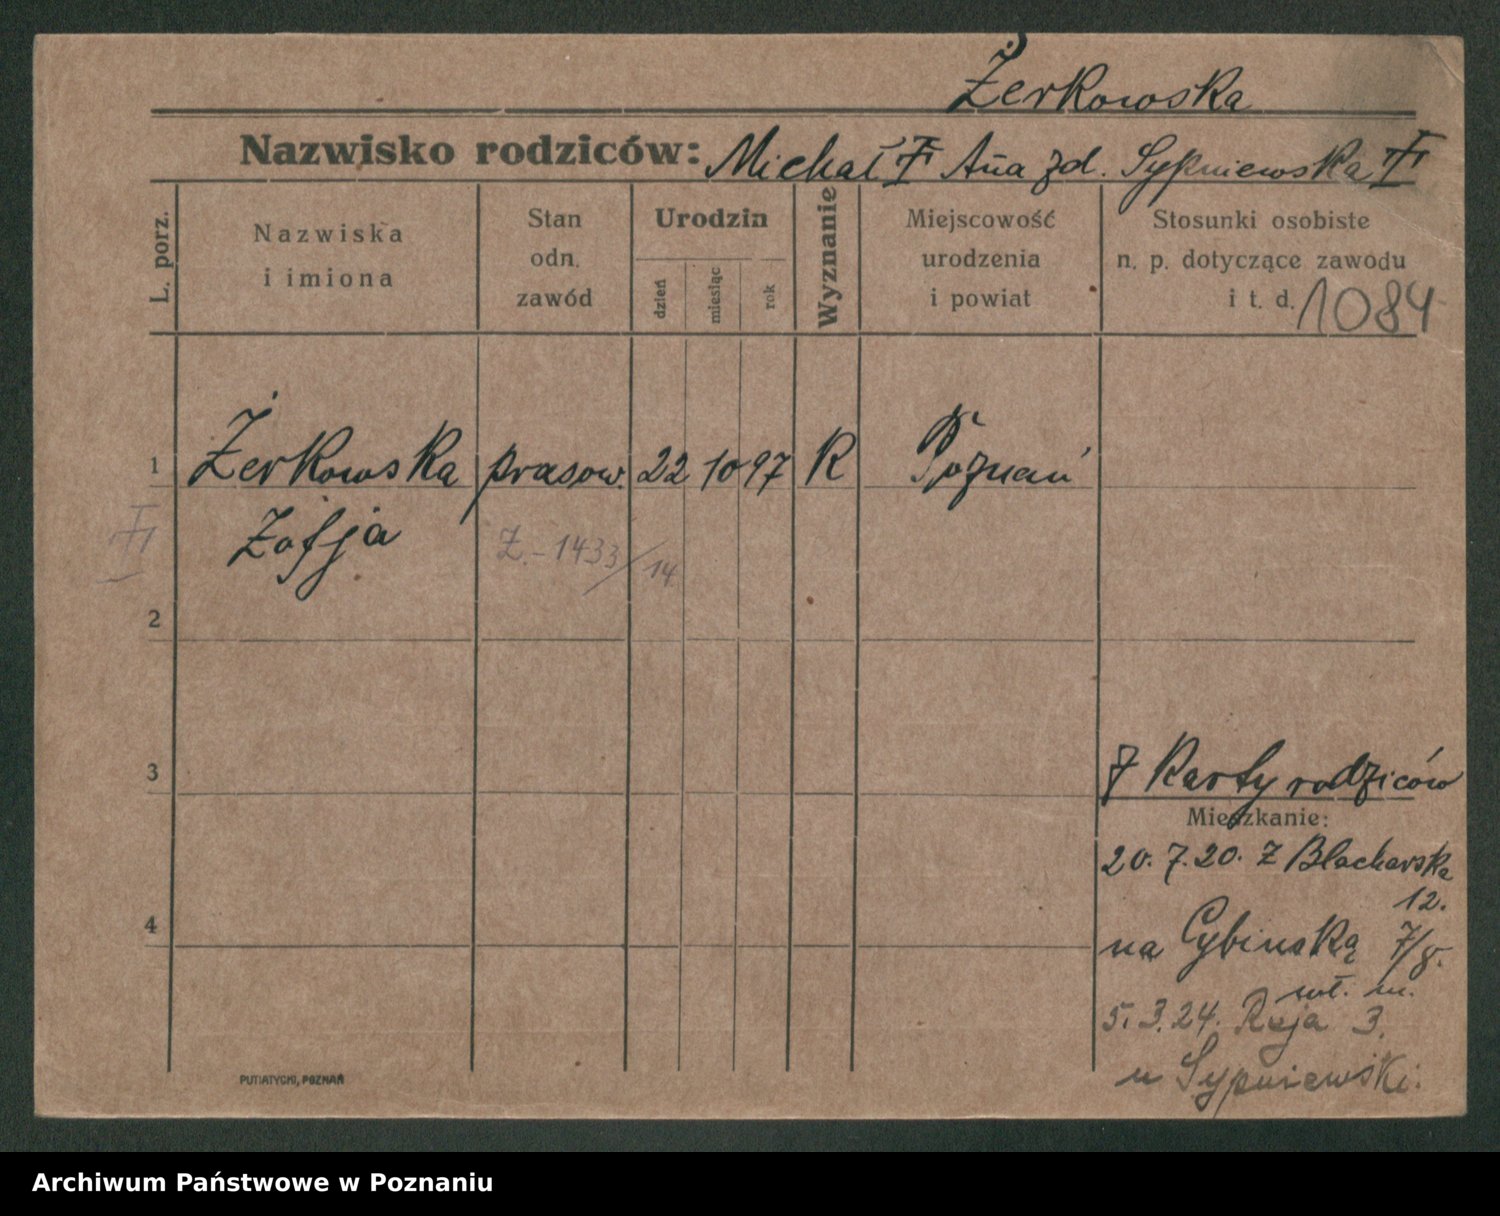 Żerkowska
Nazwisko rodziców: Michał Ana zd. Sypniewska
L. porz.
Nazwiska
i imiona
Stan
odn.
zawód
Urodzin
dzień
miesiąc
rok
Wyznanie
Miejscowość
urodzenia
i powiat
Stosunki osobiste
n. p. dotyczące zawodu
i t. d. 1084
1 Żerkowska prasow. 22 10 97 R Poznań
Zofja
Z.-1433/14.
2
3
Z Karty rodziców
Mieszkanie:
20.7.20. Z Blacharska
12.
4
na Cybinską 7/8.
wł. m.
5.3.24. Reja 3.
u Sypniewski.
PUTIATYCKI, POZNAŃ
Archiwum Państwowe w Poznaniu